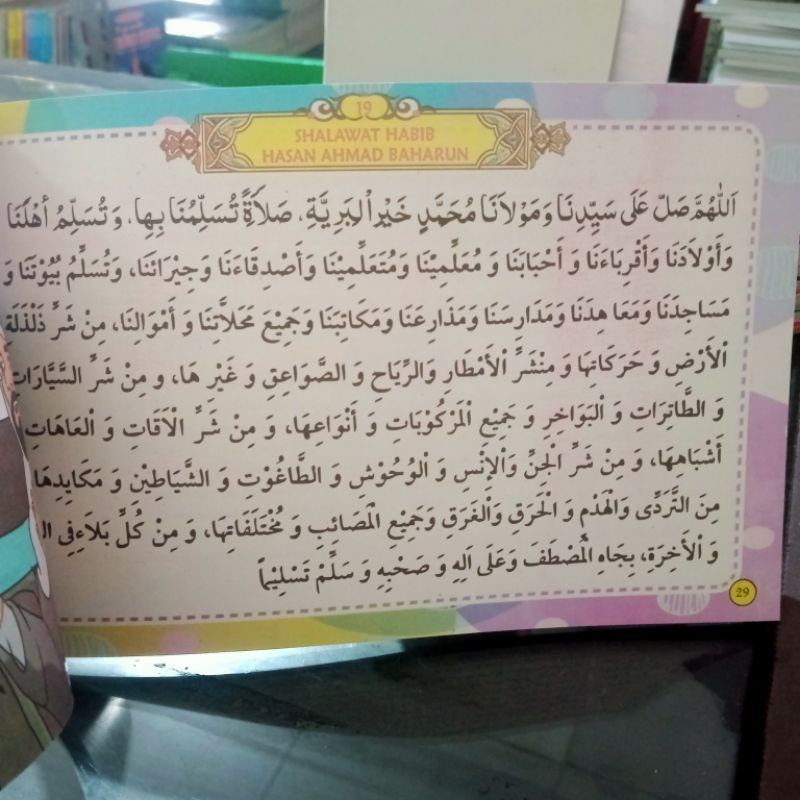 19
SHALAWAT HABIB
HASAN AHMAD BAHARUN
اَللّٰهُمَّ صَلِّ عَلَى سَيِّدِنَا وَمَوْلَانَا مُحَمَّدٍ خَيْرِ الْبَرِيَّةِ، صَلَاةً تُسَلِّمُنَا بِهَا، وَ تُسَلِّمُ أَهْلَنَا
وَأَوْلَادَنَا وَأَقْرِبَاءَنَا وَ أَحْبَابَنَا وَ مُعَلِّمِيْنَا وَمُتَعَلِّمِيْنَا وَأَصْدِقَاءَنَا وَجِيْرَانَنَا، وَتُسَلِّمُ بُيُوْتَنَا وَ
مَسَاجِدَنَا وَمَعَا هِدَنَا وَمَدَارِسَنَا وَمَذَارِعَنَا وَمَكَاتِبَنَا وَجَمِيْعَ مَحَلَّاتِنَا وَ أَمْوَالِنَا، مِنْ شَرِّ ذَلْذَلَةِ
الْأَرْضِ وَ حَرَكَاتِهَا وَ مِنْشَرِّ الْأَمْطَارِ وَالرِّيَاحِ وَ الصَّوَاعِقِ وَ غَيْرِ هَا، و مِنْ شَرِّ السَّيَّارَاتِ
وَ الطَّائِرَاتِ وَ الْبَوَاخِرِ وَ جَمِيْعِ الْمَرْكُوْبَاتِ وَ أَنْوَاعِهَا، وَ مِنْ شَرِّ الْآفَاتِ وَ الْعَاهَاتِ
أَشْبَاهِهَا، وَ مِنْ شَرِّ الْجِنِّ وَالْإِنْسِ وَ الْوُحُوْشِ وَ الطَّاغُوْتِ وَ الشَّيَاطِيْنِ وَ مَكَايِدِهَا
مِنَ التَّرَدِّى وَالْهَدْمِ وَ الْحَرَقِ وَالْغَرَقِ وَجَمِيْعِ الْمَصَائِبِ وَ مُخْتَلَفَاتِهَا، وَ مِنْ كُلِّ بَلَاءٍ فِى
وَ الْأَخِرَةِ، بِجَاهِ الْمُصْطَفَ وَعَلَى اَلِهِ وَ صَحْبِهِ وَ سَلِّمْ تَسْلِيْمًا
29